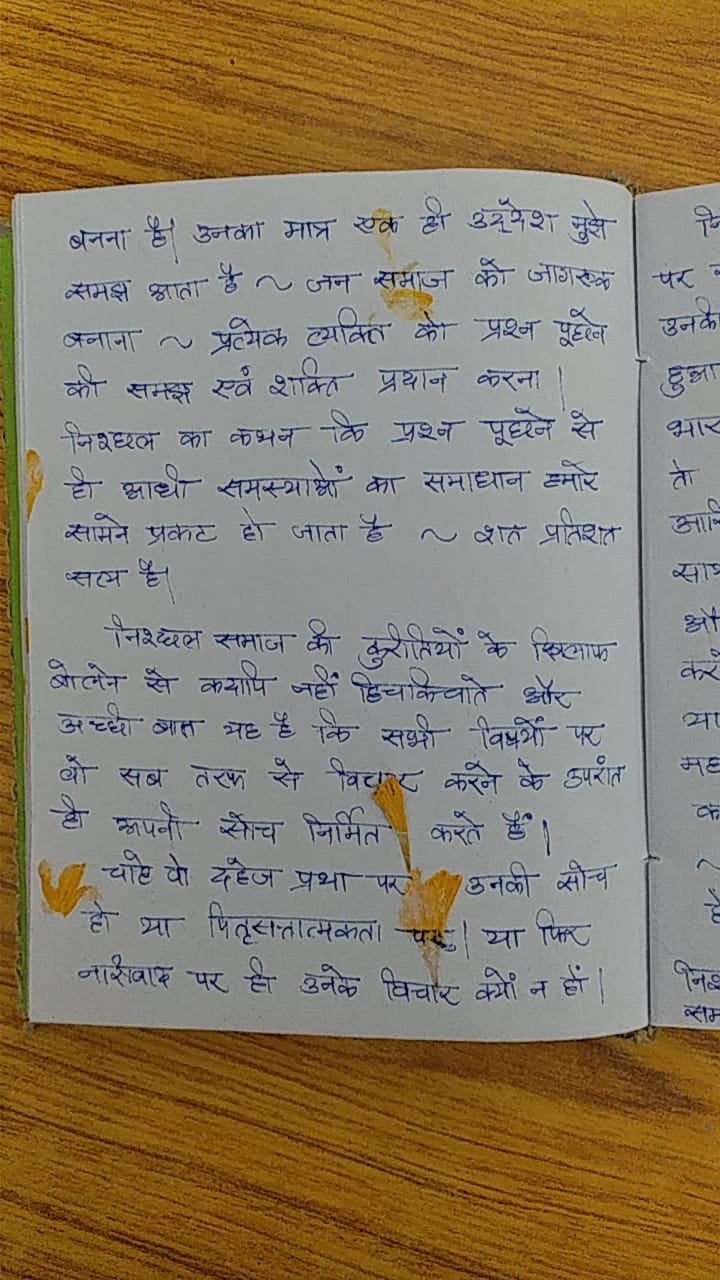 बनना है। उनका मात्र एक ही उद्देश मुझे
समझ आता है ~ जन समाज को जागरूक
बनाना ~ प्रत्येक व्यक्ति को प्रश्न पूछने
की समझ एवं शक्ति प्रदान करना।
निश्छल का कथन कि प्रश्न पूछने से
ही आधी समस्याओं का समाधान हमारे
सामने प्रकट हो जाता है ~ शत प्रतिशत
सत्य है।
निश्छल समाज की कुरीतियों के खिलाफ
बोलने से कदापि नहीं हिचकिचाते और
अच्छी बात यह है कि सभी विषयों पर
वो सब तरफ से विचार करने के उपरांत
ही अपनी सोच निर्मित करते हैं।
चाहे वो दहेज प्रथा पर उनकी सोच
हो या पितृसत्तात्मकता पर। या फिर
नारीवाद पर ही उनके विचार क्यों न हों।
पर
उनकी
हुआ
तो